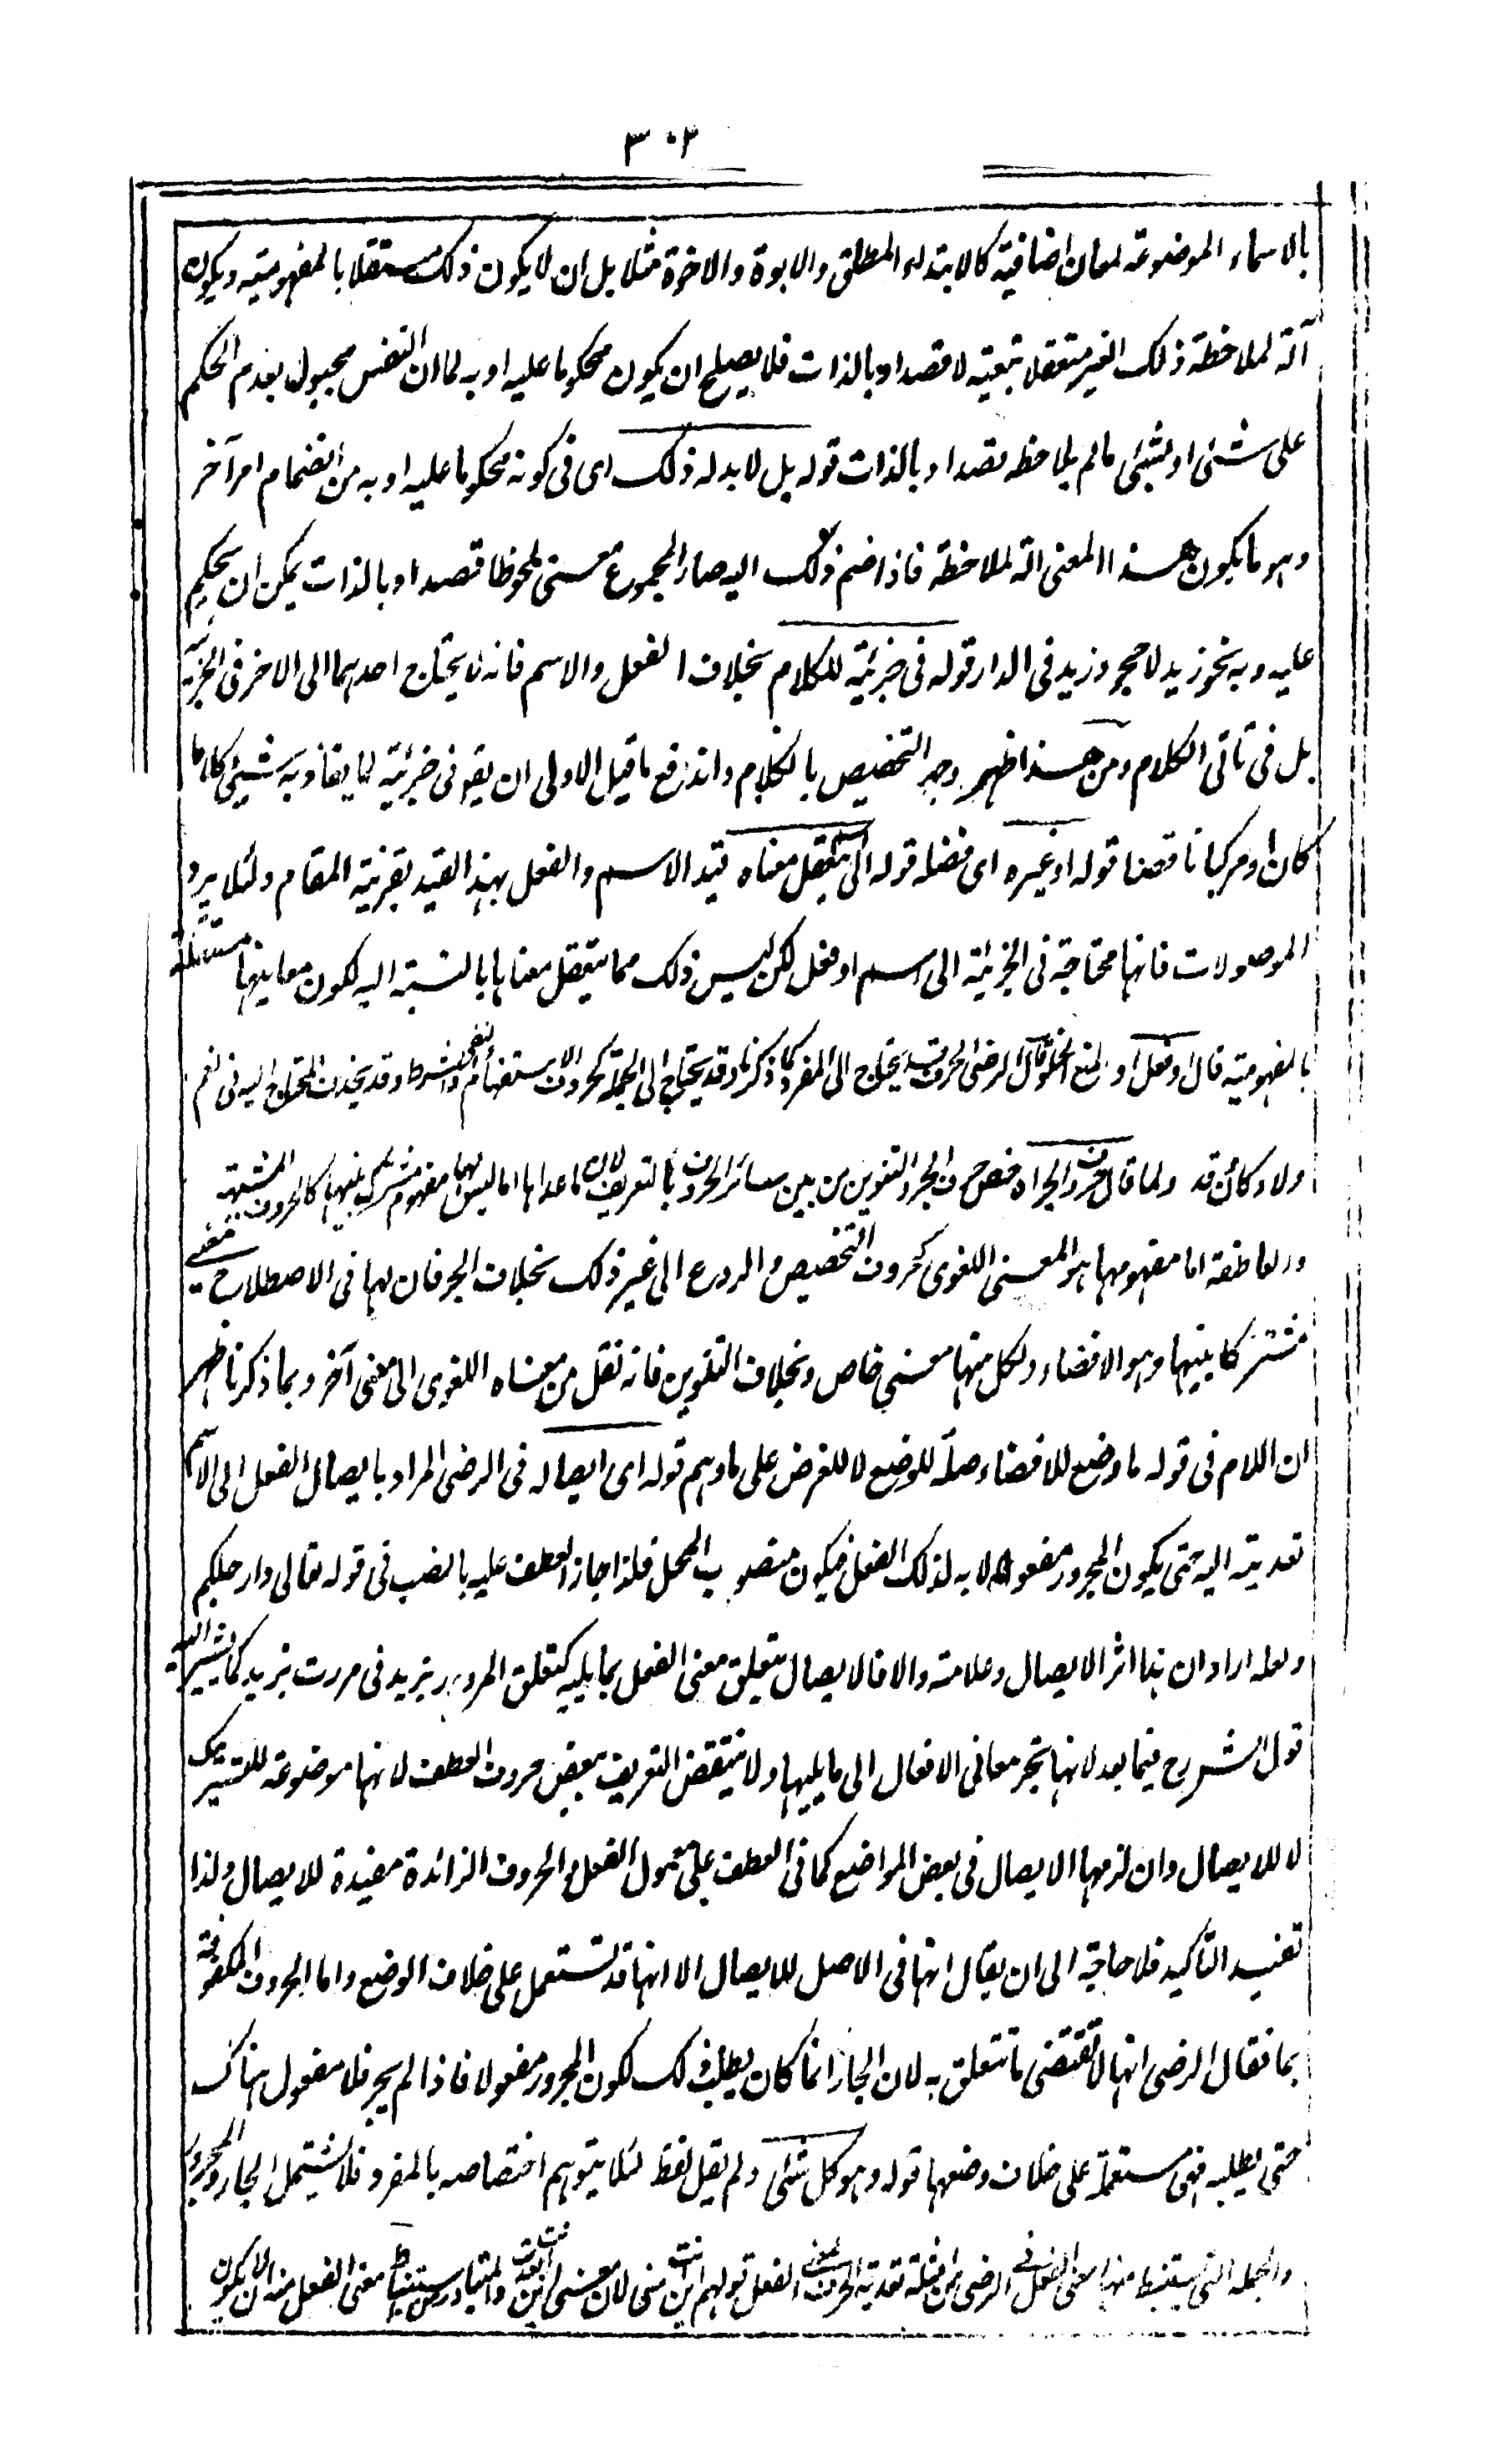 ٣٠٢
بالاسماء الموضوعة لمعان اضافية كالابتداء المطلق والابوة والاخوة مثلا بل ان لا يكون ذلك مستقلا بالمفهومية ويكون
آلة لملاحظة ذلك الغير متعقلا بتبعيته لا قصدا وبالذات فلا يصلح ان يكون محكوما عليه او به لما ان النفس مجبولة بعدم الحكم
على شئى او بشئى ما لم يلاحظه قصدا وبالذات قوله بل لا بد له ذلك اى فى كونه محكوما عليه او به من انضمام امر آخر
وهو ما يكون هذا المعنى آلة لملاحظة فاذا ضم ذلك اليه صار المجموع معنى ملحوظا قصدا وبالذات يمكن ان يحكم
عليه وبه نحو زيد لا حجر وزيد فى الدار قوله فى جزئية للكلام بخلاف الفعل والاسم فانه لا يحتاج احدهما الى الاخر فى الجزئية
بل فى تاتى الكلام ومن هذا ظهر وجه التخصيص بالكلام واندفع ما قيل الاولى ان يقو فى جزئية لما يفاد به شيئ كلاما
كان او مركبا ناقصا قوله او غيره اى فضلة قوله الى اسم يتعقل معناه قيد الاسم والفعل بهذا القيد بقرنية المقام ولئلا يرد
الموصولات فانها محتاجة فى الجزئية الى اسم او فعل لكن ليس ذلك مما يتعقل معناها بالنسبة اليه لكون معاينها مستقلة
بالمفهومية قال او فعل او لمنع الخلو قال الرضى الحرف قد يحتاج الى المفرد كما ذكرنا وقد يحتاج الى الجملة كحروف الاستفهام والشرط وقد يحذف المحتاج اليه فى نعم
ولا وكأن قد ولما قال حروف الجر اه خص حروف الجر والتنوين من بين سائر الحروف بالتعريف لان ما عداها اما ليس لها مفهوم مشترك بينها كالحروف المشبهة
والعاطفة اما مفهومها هو المعنى اللغوى كحروف التخصيص والردع الى غير ذلك بخلاف الجر فان لها فى الاصطلاح معنى
مشتركا بينها وهو الافضاء ولكل منها معنى خاص وبخلاف التنوين فانه نقل من معناه اللغوى الى معنى آخر وبما ذكرنا ظهر
ان اللام فى قوله ما وضع للافضاء صلة للوضع لا للغرض على ما وهم قوله اى ايصاله فى الرضى المراد بايصال الفعل الى الاسم
تعديته اليه حتى يكون المجرور مفعولا به لذلك الفعل فيكون منصوب المحل فلذا جاز العطف عليه بالنصب فى قوله تعالى وارجلكم
ولعله اراد ان هذا اثر الايصال وعلامته والا فالايصال تعلق معنى الفعل بما يليه كتعلق المرور بزيد فى مررت بزيد كما يشير اليه
قول الشرح فيما بعد لانها تجر معانى الافعال الى ما يليها ولا ينتقض التعريف ببعض حروف العطف لانها موضوعة للتشريك
لا للايصال وان لزمها الايصال فى بعض المواضع كما فى العطف على معمول الفعل والحروف الزائدة مفيدة للايصال ولذا
تفيد التأكيد فلا حاجة الى ان يقال انها فى الاصل للايصال الا انها قد تستعمل على خلاف الوضع واما الحروف المكفوفة
بما فقال الرضى انها لا تقتضى ما تتعلق به لان الجار انما كان يطلب ذلك لكون المجرور مفعولا فاذا لم يجر فلا مفعول هناك
حتى يطلبه فهى مستعملة على خلاف وضعها قوله وهو كل شئى ولم يقل لفظ لئلا يتوهم اختصاصه بالمفرد فلا يشتمل الجار والمجرور
والجملة التى يستنبط منها معنى الفعل فى الرضى من امثلة تعدية الحرف لمعنى الفعل قولهم اين انت منى لان معنى اين انت بعدت والمتبادر من استنباط معنى الفعل منه ان لا يكون